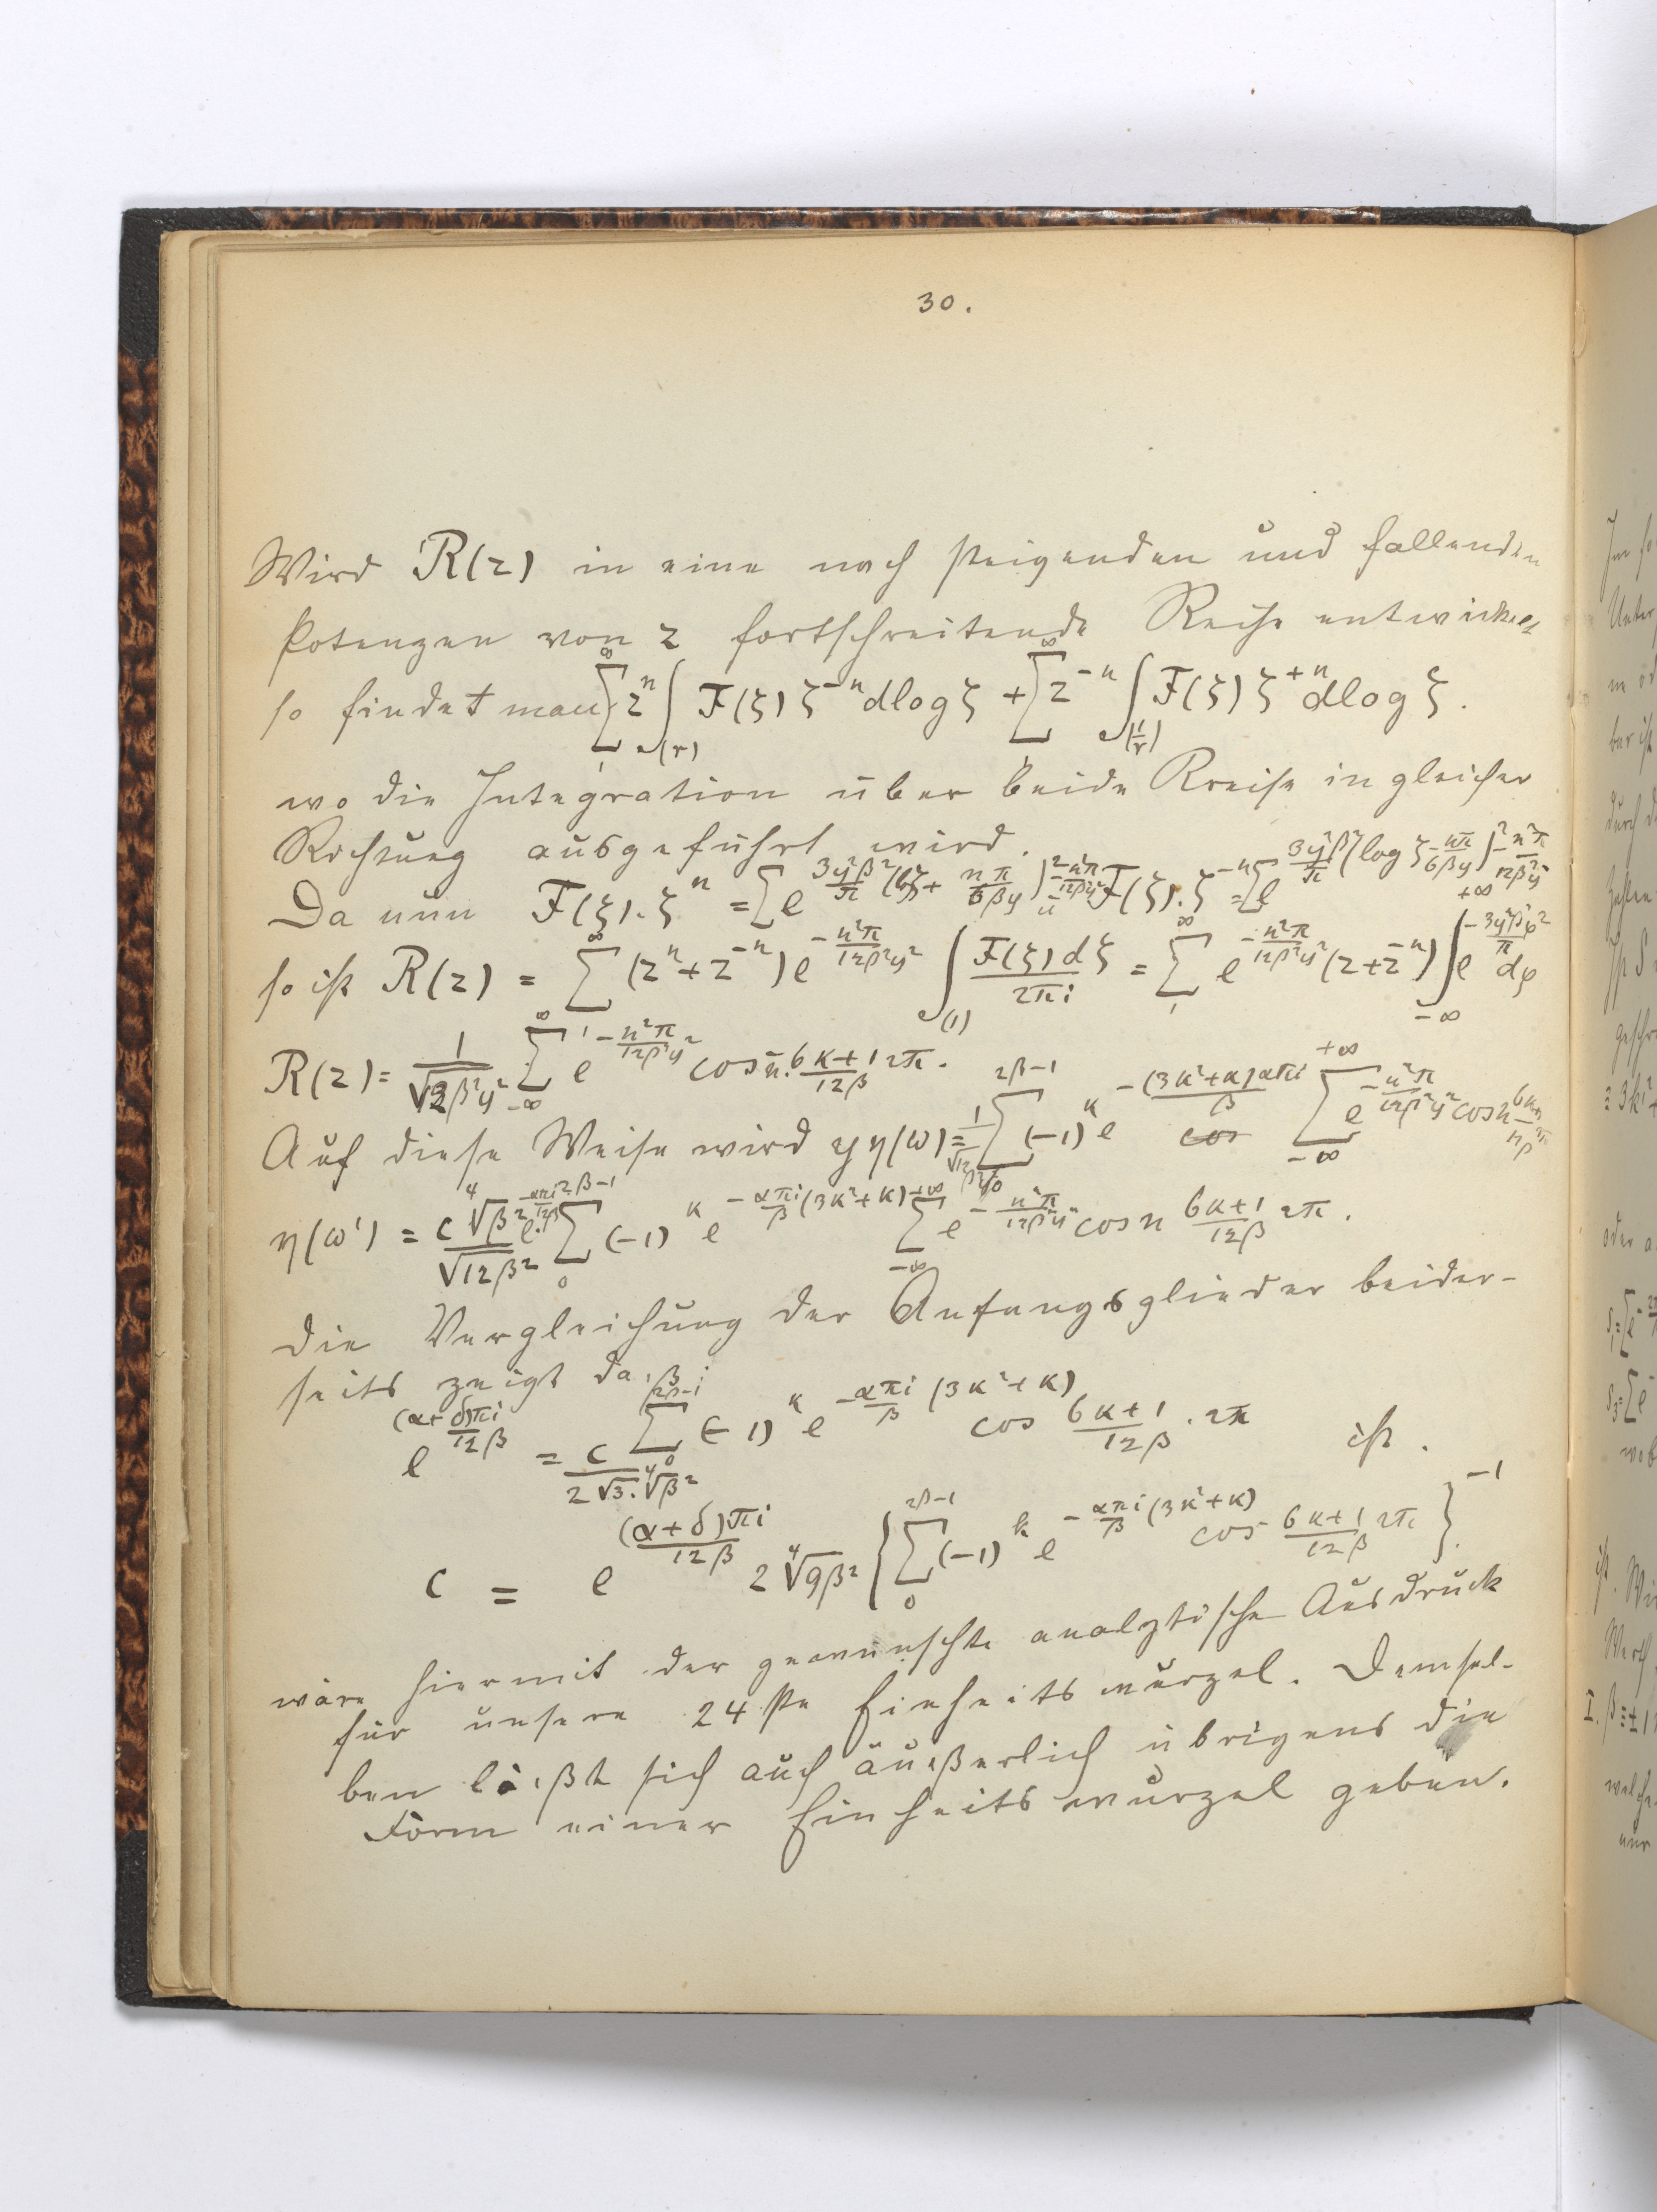 30.
Wird R(z) in eine nach steigenden und fallenden
Potenzen von z fortschreitende Reihe entwickelt
so findet man \sum_{1}^{\infty} z^n \int_{(r)} F(ζ) ζ^{-n} dlog ζ + \sum_{1}^{\infty} z^{-n} \int_{(\frac{1}{r})} F(ζ) ζ^{+n} dlog ζ.
wo die Integration über beide Kreise in gleicher
Richtung ausgeführt wird.
Da nun F(ζ).ζ^n = \sum e^{\frac{3y^2β^2}{π}(lζ + \frac{nπ}{6βy})^2 - \frac{n^2π}{12β^2y^2}} u F(ζ).ζ^{-n} = \sum e^{\frac{3y^2β^2}{π}(log ζ - \frac{nπ}{6βy})^2 - \frac{n^2π}{12β^2y^2}}
so ist R(z) = \sum_{1}^{\infty} (z^n + z^{-n}) e^{-\frac{n^2π}{12β^2y^2}} \int_{(1)} \frac{F(ζ) dζ}{2πi} = \sum_{1}^{\infty} e^{-\frac{n^2π}{12β^2y^2}} (z + z^{-n}) \int_{-\infty}^{+\infty} e^{-\frac{3y^2β^2φ^2}{π}} dφ
R(z) = \frac{1}{\sqrt{12β^2y^2}} \sum_{-\infty}^{\infty} e^{-\frac{n^2π}{12β^2y^2}} cos n. \frac{6κ+1}{12β} 2π.
Auf diese Weise wird y η(ω) = \frac{1}{\sqrt{12β^2y^2}} \sum_{0}^{2β-1} (-1)^κ e^{-\frac{(3κ^2+κ)απi}{β}} \sum_{-\infty}^{+\infty} e^{-\frac{n^2π}{12β^2y^2}} cos n \frac{6κ+1}{12β} 2π
η(ω') = \frac{c \sqrt[4]{β^2} e^{-\frac{απi}{12β}}}{\sqrt{12β^2}} \sum_{0}^{2β-1} (-1)^κ e^{-\frac{απi}{β}(3κ^2+κ)} \sum_{-\infty}^{+\infty} e^{-\frac{n^2π}{12β^2y^2}} cos n \frac{6κ+1}{12β} 2π.
Die Vergleichung der Anfangsglieder beider-
seits zeigt daß
e^{\frac{(α+δ)πi}{12β}} = \frac{c}{2\sqrt{3}.\sqrt[4]{β^2}} \sum_{0}^{2β-1} (-1)^κ e^{-\frac{απi}{β}(3κ^2+κ)} cos \frac{6κ+1}{12β} . 2π ist.
c = e^{\frac{(α+δ)πi}{12β}} 2 \sqrt[4]{9β^2} \{ \sum_{0}^{2β-1} (-1)^k e^{-\frac{απi}{β}(3κ^2+κ)} cos \frac{6κ+1}{12β} 2π \}^{-1}.
wäre hiermit der gewünschte analytische Ausdruck
für unsere 24ste Einheitswurzel. Demsel-
ben läßt sich auch äußerlich übrigens die
Form einer Einheitswurzel geben.